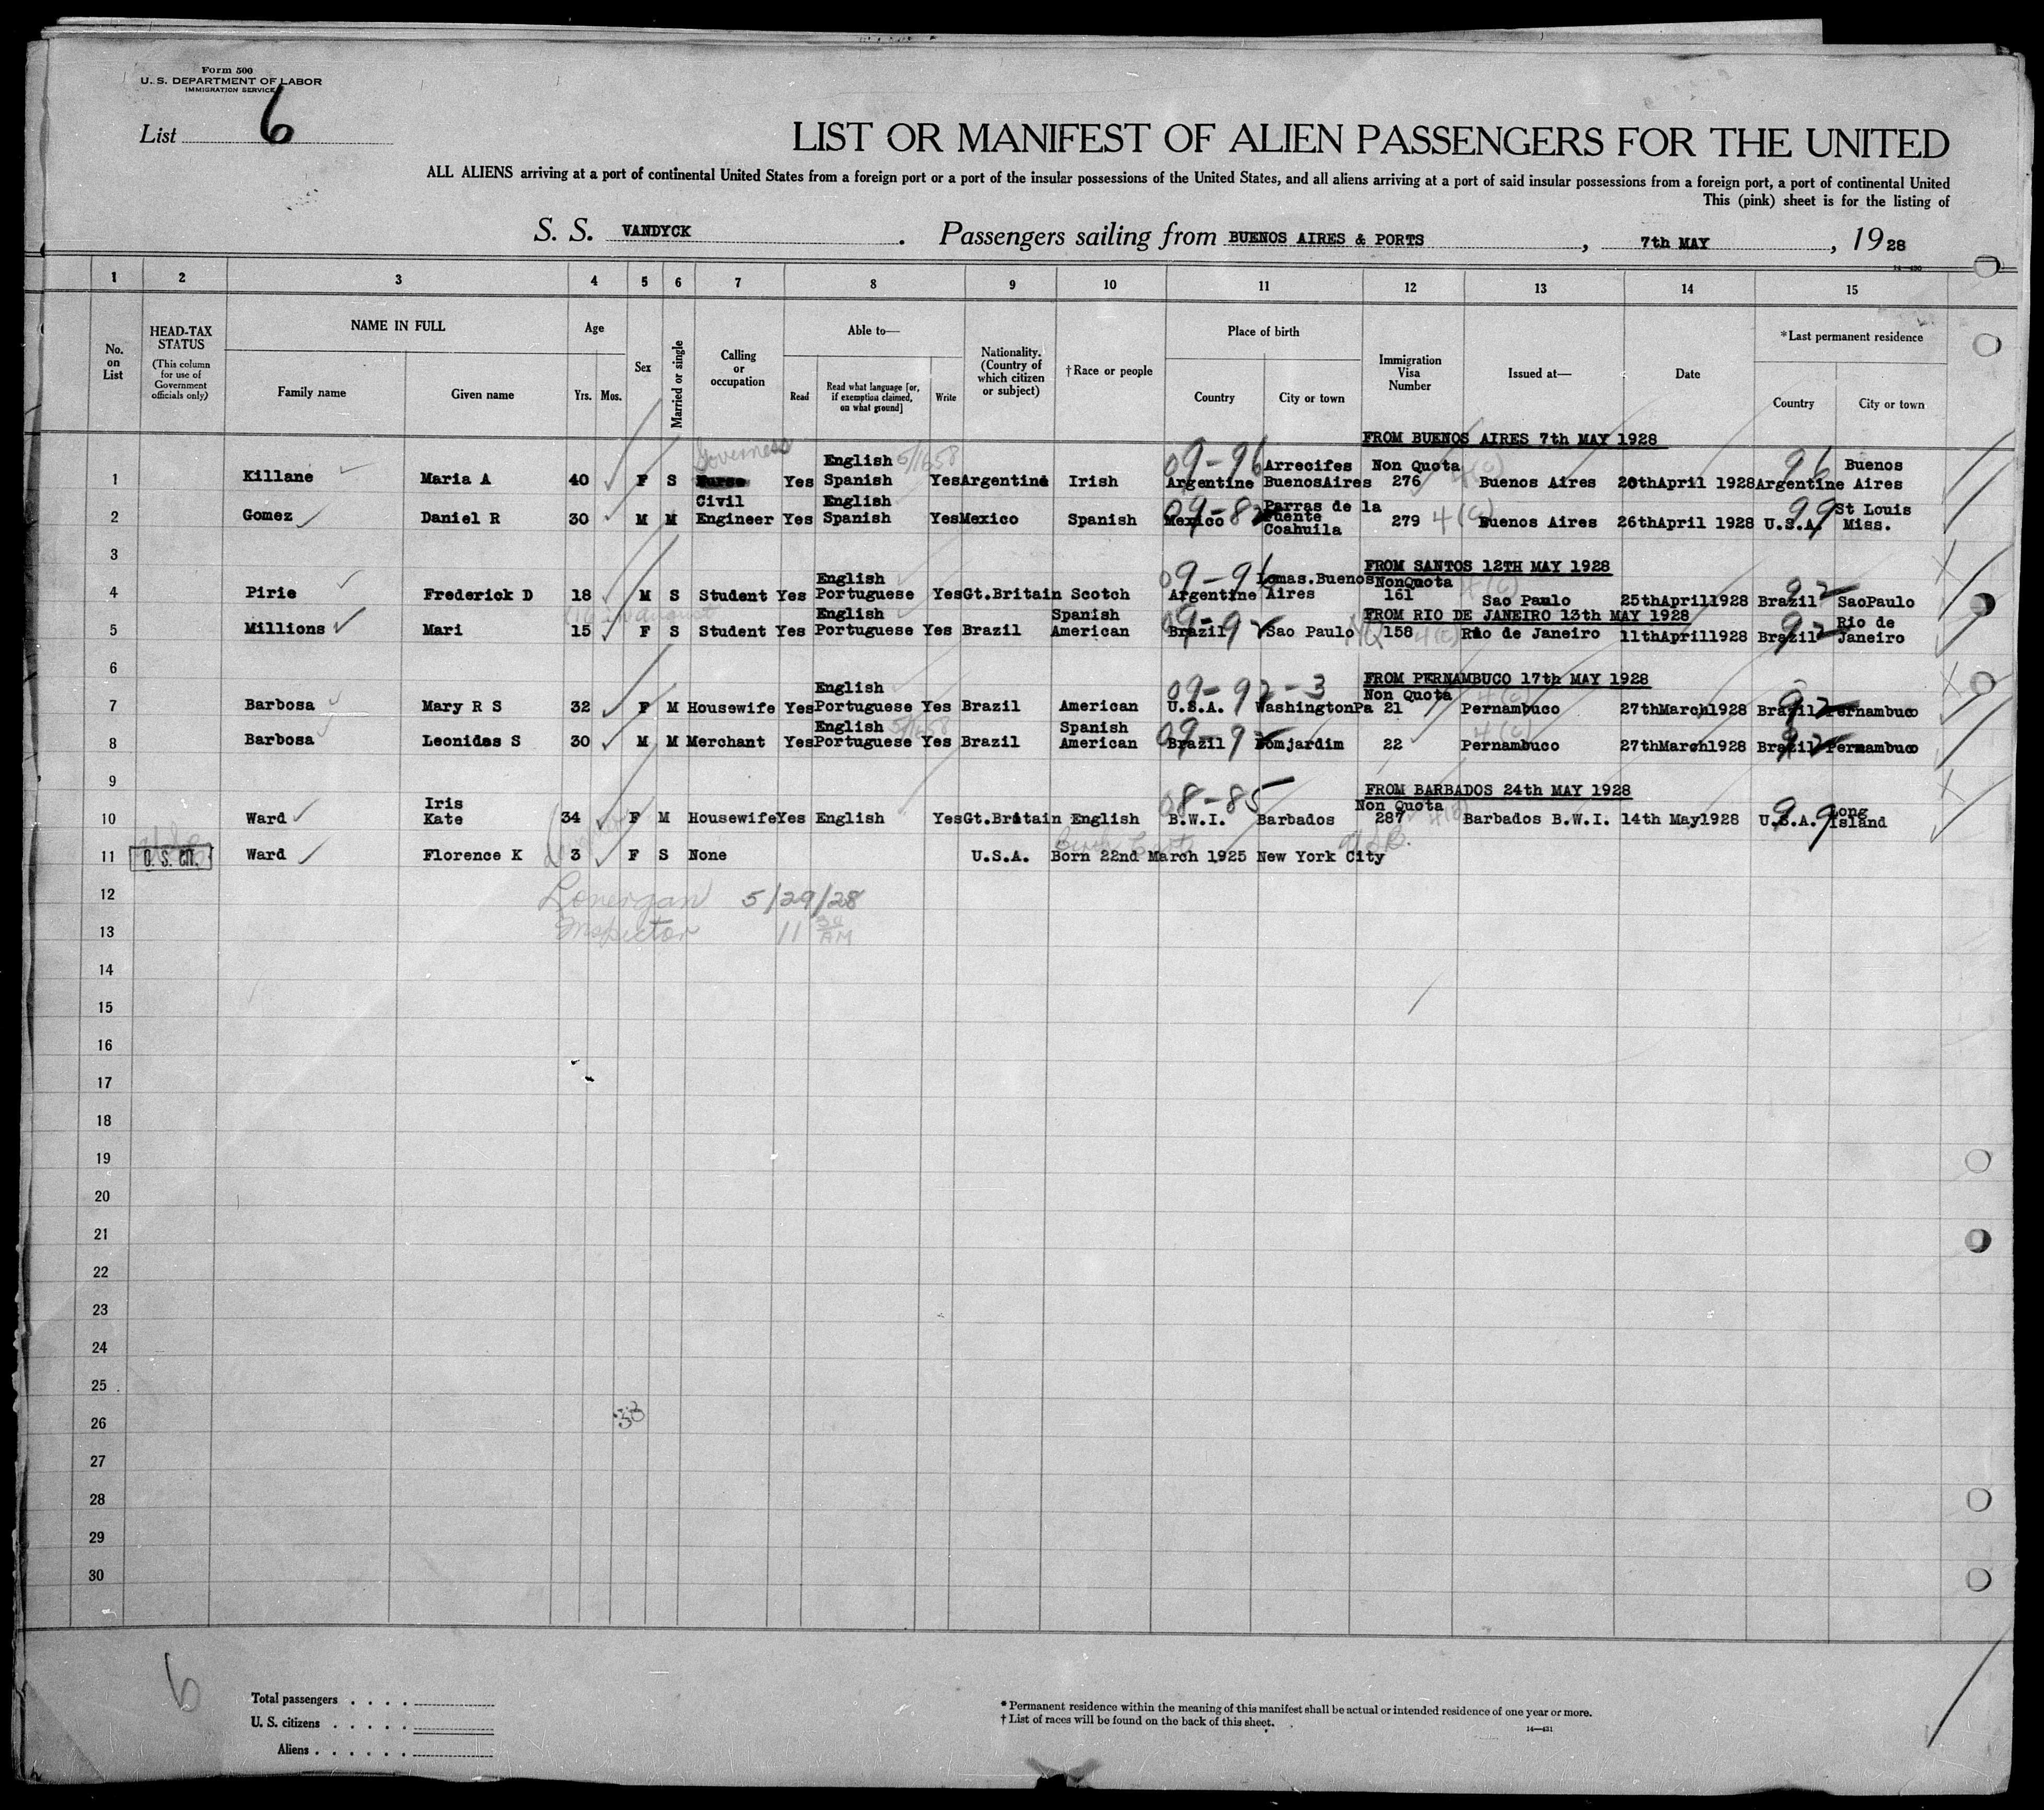 Form 500
U. S. DEPARTMENT OF LABOR
IMMIGRATION SERVICE
List 6
LIST OR MANIFEST OF ALIEN PASSENGERS FOR THE UNITED
ALL ALIENS arriving at a port of continental United States from a foreign port or a port of the insular possessions of the United States, and all aliens arriving at a port of said insular possessions from a foreign port, a port of continental United
This (pink) sheet is for the listing of
S. S. VANDYCK . Passengers sailing from BUENOS AIRES & PORTS , 7th MAY , 1928
14—430
1 2 3 4 5 6 7 8 9 10 11 12 13 14 15
No. on List
HEAD-TAX STATUS
(This column for use of Government officials only)
NAME IN FULL
Family name Given name
Age
Yrs. Mos.
Sex
Married or single
Calling or occupation
Able to—
Read
Read what language [or, if exemption claimed, on what ground]
Write
Nationality. (Country of which citizen or subject)
†Race or people
Place of birth
Country City or town
Immigration Visa Number
Issued at—
Date
*Last permanent residence
Country City or town
FROM BUENOS AIRES 7th MAY 1928
Governess English 5/1658 09-96 Arrecifes Non Quota 4(c) 96 Buenos
1 Killane Maria A 40 F S Nurse Yes Spanish Yes Argentina Irish Argentine BuenosAires 276 Buenos Aires 20thApril 1928 Argentine Aires
Civil English 09-82 Parras de la 99 St Louis
2 Gomez Daniel R 30 M M Engineer Yes Spanish Yes Mexico Spanish Mexico Fuente Coahuila 279 4(c) Buenos Aires 26thApril 1928 U.S.A. Miss.
3
FROM SANTOS 12TH MAY 1928
English 09-96 Lomas.Buenos NonQuota 4(c) 92
4 Pirie Frederick D 18 M S Student Yes Portuguese Yes Gt.Britain Scotch Argentine Aires 161 Sao Paulo 25thApril1928 Brazil SaoPaulo
FROM RIO DE JANEIRO 13th MAY 1928
(16 in august English Spanish 09-92 92 Rio de
5 Millions Mari 15 F S Student Yes Portuguese Yes Brazil American Brazil Sao Paulo NQ 158 4(c) Rio de Janeiro 11thApril1928 Brazil Janeiro
6
FROM PERNAMBUCO 17th MAY 1928
English 09-92-3 Non Quota 4(c) 92
7 Barbosa Mary R S 32 F M Housewife Yes Portuguese Yes Brazil American U.S.A. WashingtonPa 21 Pernambuco 27thMarch1928 Brazil Pernambuco
English 5/1658 Spanish 09-92 4(c) 92
8 Barbosa Leonidas S 30 M M Merchant Yes Portuguese Yes Brazil American Brazil Bomjardim 22 Pernambuco 27thMarch1928 Brazil Pernambuco
9
FROM BARBADOS 24th MAY 1928
Iris 08-85 Non Quota 99 Long
10 Ward Kate 34 F M Housewife Yes English Yes Gt.Britain English B.W.I. Barbados 287 Barbados B.W.I. 14th May1928 U.S.A. Island
11 U.S. CIT. Ward Florence K 3 F S None U.S.A. Born 22nd March 1925 New York City
12 Lonergan 5/29/28
13 Inspector 11 30 AM
14
15
16
17
18
19
20
21
22
23
24
25
26
27
28
29
30
38
6
Total passengers . . . .
U. S. citizens . . . . .
Aliens . . . . . .
* Permanent residence within the meaning of this manifest shall be actual or intended residence of one year or more.
† List of races will be found on the back of this sheet.
14—431